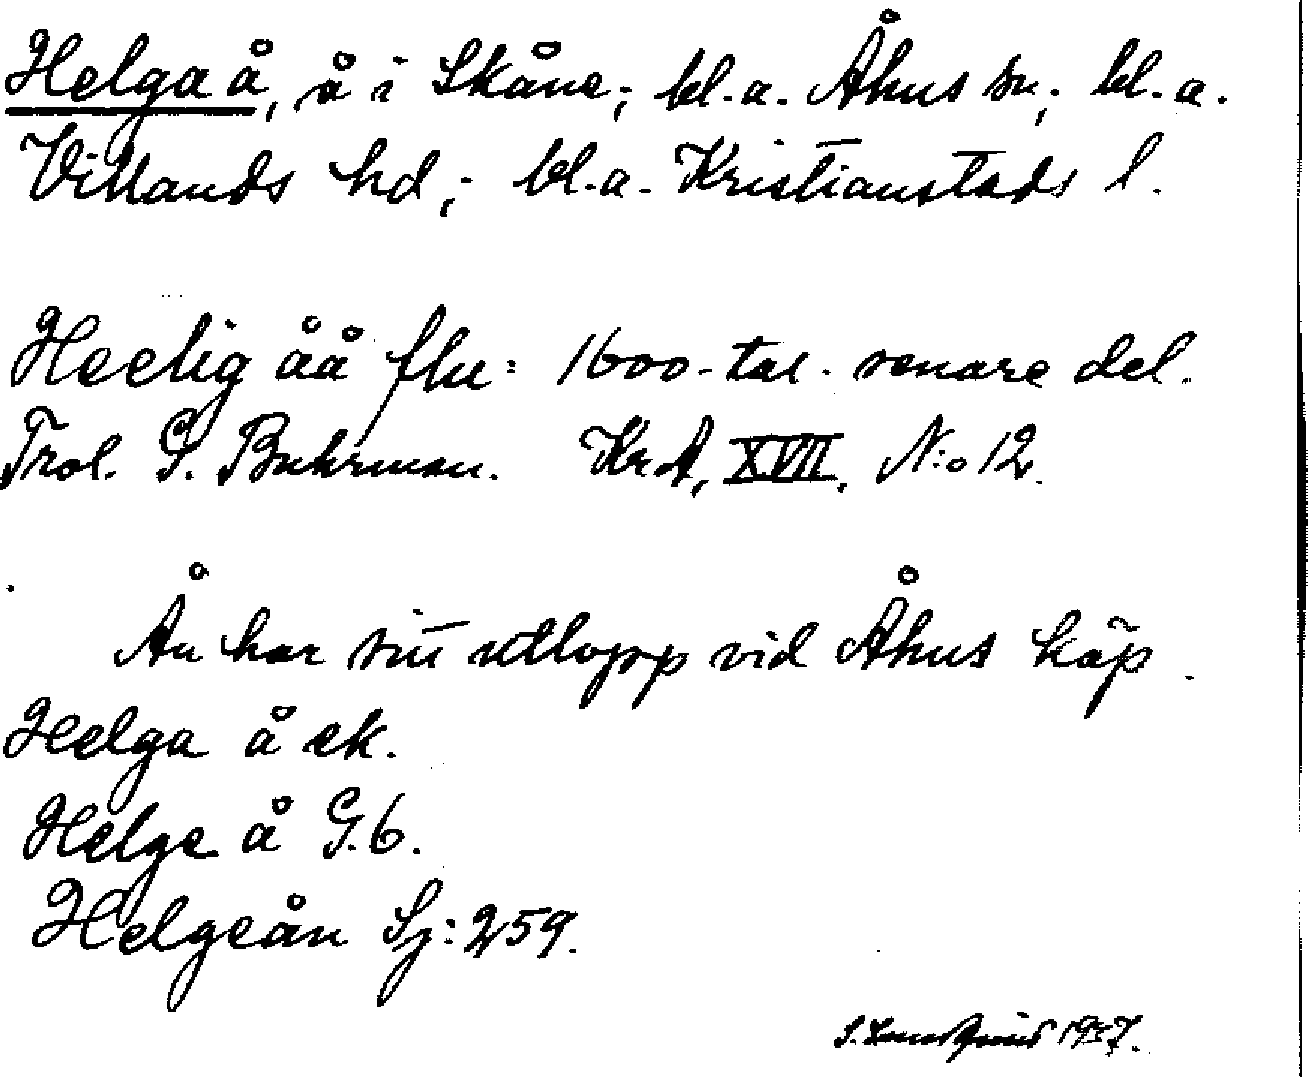 Helga å, å i Skåne; bl.a. Åhus sn; bl.a.
Villands hd; bl.a. Kristianstads l.
Heelig åå flu: 1600-tal. senare del.
Trol. G. Buhrman. KrA, XVII, N:o 12.
Ån har sitt utlopp vid Åhus köp.
Helga å ek.
Helge å G.6.
Helgeån Sj: 259.
S. 1937.